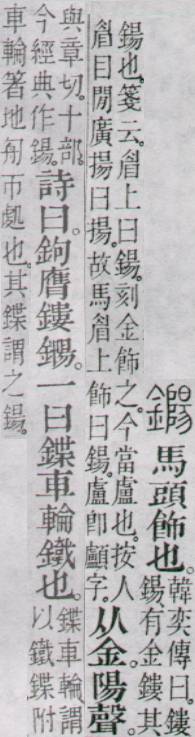 鐊馬頭飾也。韓奕傳曰。鏤
鍚。有金鏤其
鍚也。箋云。睂上曰鍚。刻金飾之。今當盧也。按人
睂目閒廣揚曰揚。故馬睂上飾曰鍚。盧卽顱字。从金陽聲。
與章切。十部。
今經典作鍚。詩曰。鉤膺鏤鍚。一曰鍱車輪鐵也。鍱車輪謂
以鐵鍱附
車輪箸地帀處也。其鍱謂之鍚。